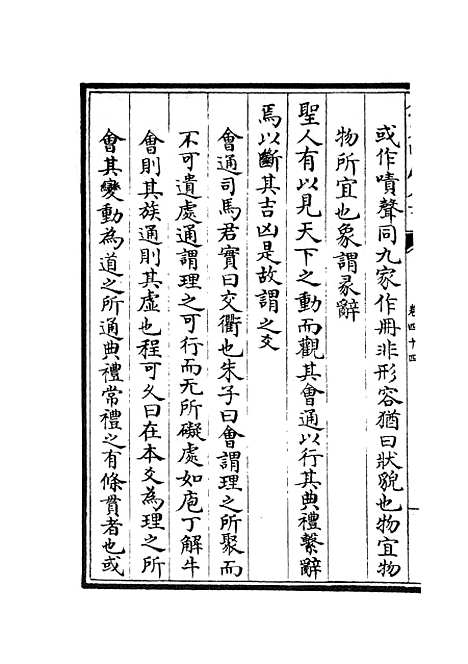 或作嘖聲同九家作冊非形容猶曰狀貌也物宜物
物所宜也象謂彖辭
聖人有以見天下之動而觀其會通以行其典禮繫辭
焉以斷其吉凶是故謂之爻
會通司馬君實曰交衢也朱子曰會謂理之所聚而
不可遺處通謂理之可行而无所礙處如庖丁解牛
會則其族通則其虛也程可久曰在本爻為理之所
會其變動為道之所通典禮常禮之有條貫者也或
卷四十四